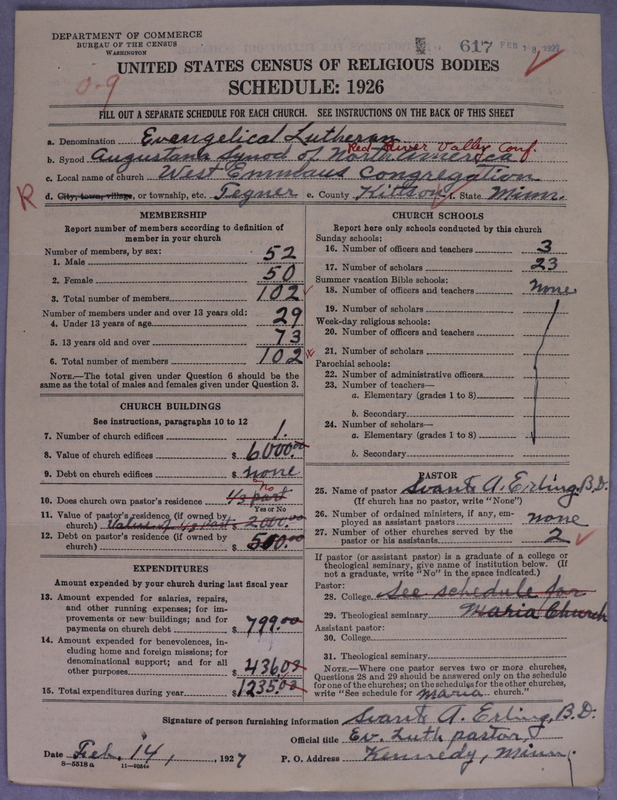 DEPARTMENT OF COMMERCE
BUREAU OF THE CENSUS
WASHINGTON
617 FEB 18 1927
UNITED STATES CENSUS OF RELIGIOUS BODIES
SCHEDULE: 1926
0-9
FILL OUT A SEPARATE SCHEDULE FOR EACH CHURCH. SEE INSTRUCTIONS ON THE BACK OF THIS SHEET
a. Denomination Evangelical Lutheran
Red River Valley Conf.
b. Synod Augustana Synod of North America
c. Local name of church West Emmaus Congregation
R d. City, town, village, or township, etc. Tegner e. County Kittson f. State Minn.
MEMBERSHIP
Report number of members according to definition of
member in your church
Number of members, by sex:
1. Male 52
2. Female 50
3. Total number of members 102
Number of members under and over 13 years old:
4. Under 13 years of age 29
5. 13 years old and over 73
6. Total number of members 102
NOTE.—The total given under Question 6 should be the
same as the total of males and females given under Question 3.
CHURCH BUILDINGS
See instructions, paragraphs 10 to 12
7. Number of church edifices 1.
8. Value of church edifices $ 6000.00
9. Debt on church edifices $ none
10. Does church own pastor's residence 1/3 part no
Yes or No
11. Value of pastor's residence (if owned by
church) Value of 1/3 part $ 2000.00
12. Debt on pastor's residence (if owned by
church) $ 500.00
EXPENDITURES
Amount expended by your church during last fiscal year
13. Amount expended for salaries, repairs,
and other running expenses; for im-
provements or new buildings; and for
payments on church debt $ 799.00
14. Amount expended for benevolences, in-
cluding home and foreign missions; for
denominational support; and for all
other purposes $ 436.00
15. Total expenditures during year $ 1235.00
CHURCH SCHOOLS
Report here only schools conducted by this church
Sunday schools:
16. Number of officers and teachers 3
17. Number of scholars 23
Summer vacation Bible schools:
18. Number of officers and teachers none
19. Number of scholars
Week-day religious schools:
20. Number of officers and teachers
21. Number of scholars
Parochial schools:
22. Number of administrative officers
23. Number of teachers—
a. Elementary (grades 1 to 8)
b. Secondary
24. Number of scholars—
a. Elementary (grades 1 to 8)
b. Secondary
PASTOR
25. Name of pastor Svante A. Erling, B.D.
(If church has no pastor, write "None")
26. Number of ordained ministers, if any, em-
ployed as assistant pastors none
27. Number of other churches served by the
pastor or his assistants 2
If pastor (or assistant pastor) is a graduate of a college or
theological seminary, give name of institution below. (If
not a graduate, write "No" in the space indicated.)
Pastor:
28. College See schedule for
29. Theological seminary Maria Church
Assistant pastor:
30. College
31. Theological seminary
NOTE.—Where one pastor serves two or more churches,
Questions 28 and 29 should be answered only on the schedule
for one of the churches; on the schedules for the other churches,
write "See schedule for Maria church."
Signature of person furnishing information Svante A. Erling, B.D.
Official title Ev. Luth pastor
Date Feb. 14, 1927 P. O. Address Kennedy, Minn.
8-5518a